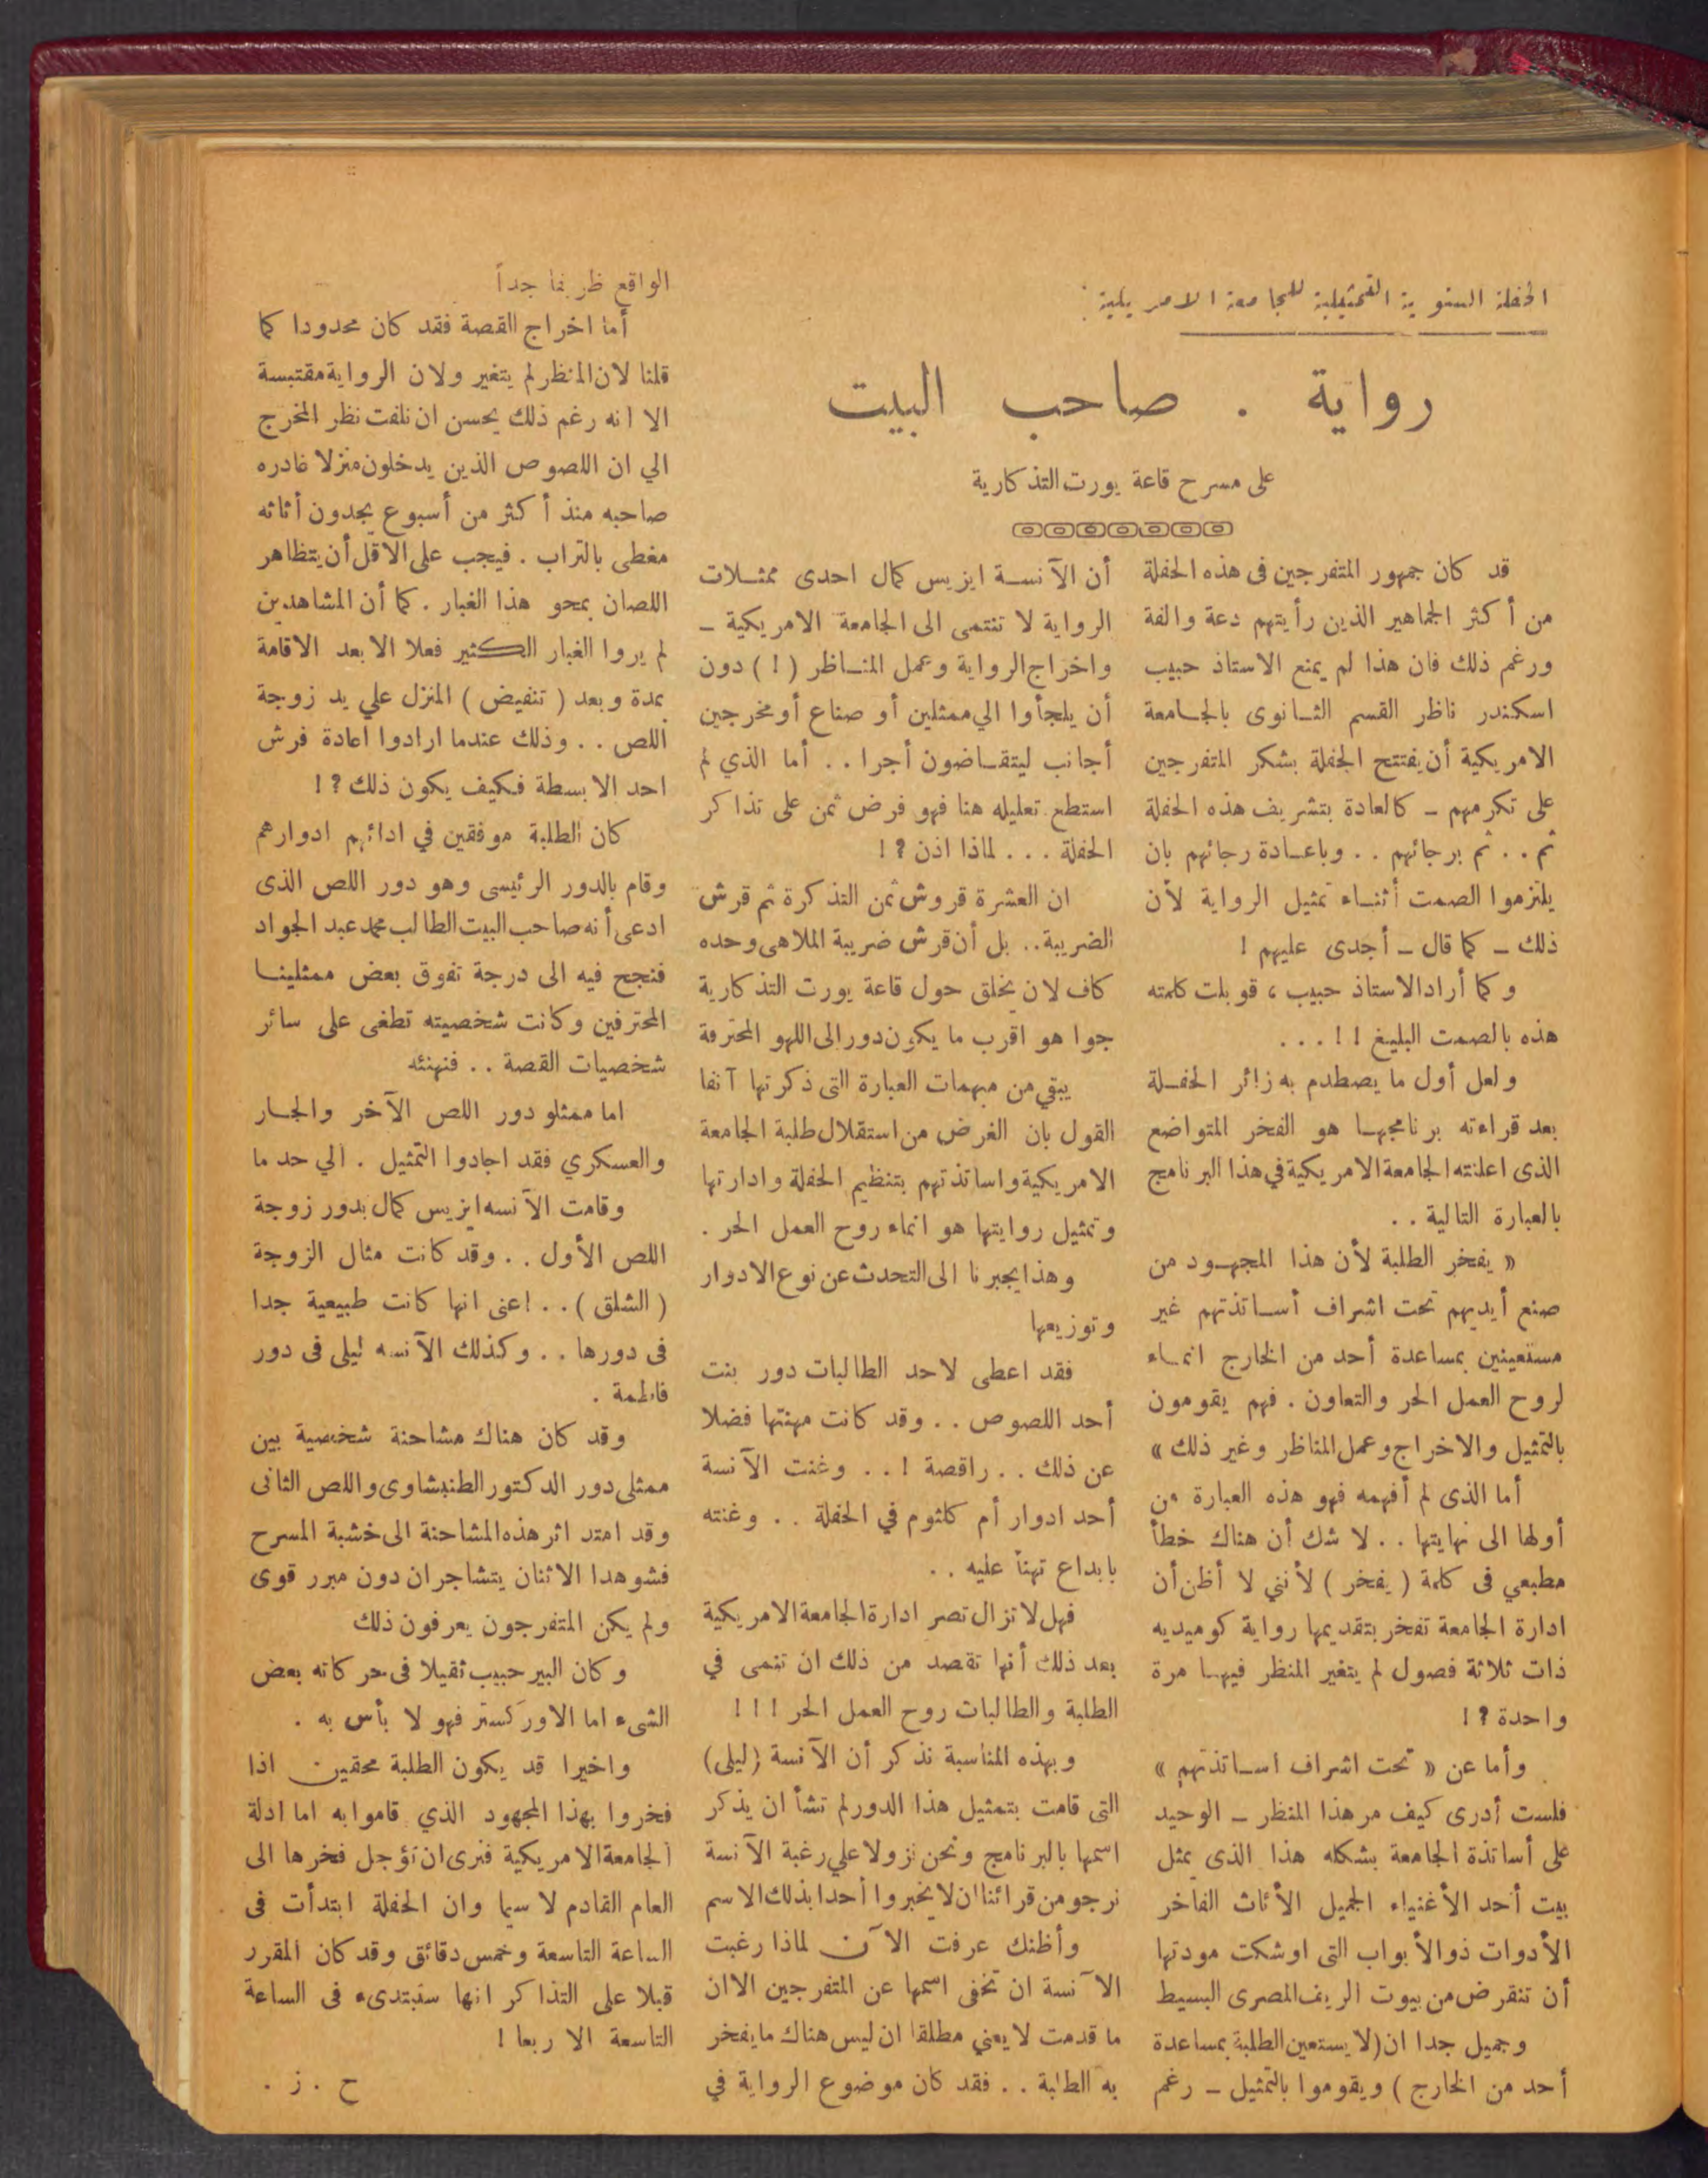 الحفلة السنوية التمثيلية للجامعة الامريكية :
رواية . صاحب البيت
على مسرح قاعة يورت التذكارية
قد كان جمهور المتفرجين فى هذه الحفلة
من أكثر الجماهير الذين رأيتهم دعة والفة
ورغم ذلك فان هذا لم يمنع الاستاذ حبيب
اسكندر ناظر القسم الثانوى بالجامعة
الامريكية أن يفتتح الحفلة بشكر المتفرجين
على تكرمهم ـ كالعادة بتشريف هذه الحفلة
ثم . . ثم برجائهم . . وباعادة رجائهم بان
يلتزموا الصمت أثناء تمثيل الرواية لأن
ذلك ـ كما قال ـ أجدى عليهم !
وكما أراد الاستاذ حبيب ، قوبلت كلمته
هذه بالصمت البليغ ! ! . . .
ولعل أول ما يصطدم به زائر الحفلة
بعد قراءته برنامجها هو الفخر المتواضع
الذى اعلنته الجامعة الامريكية في هذا البرنامج
بالعبارة التالية . .
« يفخر الطلبة لأن هذا المجهود من
صنع أيديهم تحت اشراف أساتذتهم غير
مستعينين بمساعدة أحد من الخارج انماء
لروح العمل الحر والتعاون . فهم يقومون
بالتمثيل والاخراج وعمل المناظر وغير ذلك »
أما الذى لم أفهمه فهو هذه العبارة من
أولها الى نهايتها . . لا شك أن هناك خطأ
مطبعي فى كلمة ( يفخر ) لأنني لا أظن أن
ادارة الجامعة تفخر بتقديمها رواية كوميديه
ذات ثلاثة فصول لم يتغير المنظر فيها مرة
واحدة ؟ !
وأما عن « تحت اشراف اساتذتهم »
فلست أدرى كيف مر هذا المنظر ـ الوحيد
على أساتذة الجامعة بشكله هذا الذى يمثل
بيت أحد الأغنياء الجميل الأثاث الفاخر
الأدوات ذو الأبواب التى اوشكت مودتها
أن تنقرض من بيوت الريف المصرى البسيط
وجميل جدا ان ( لا يستعين الطلبة بمساعدة
أحد من الخارج ) ويقوموا بالتمثيل ـ رغم
أن الآنسة ايزيس كمال احدى ممثلات
الرواية لا تنتمى الى الجامعة الامريكية ـ
واخراج الرواية وعمل المناظر ( ! ) دون
أن يلجأوا الي ممثلين أو صناع أو مخرجين
أجانب ليتقاضون أجرا . . أما الذي لم
استطع تعليله هنا فهو فرض ثمن على تذاكر
الحفلة . . . لماذا اذن ؟ !
ان العشرة قروش ثمن التذكرة ثم قرش
الضريبة . . بل أن قرش ضريبة الملاهى وحده
كاف لان يخلق حول قاعة يورت التذكارية
جوا هو اقرب ما يكون دور الى اللهو المحترفة
يبقي من مبهمات العبارة التى ذكرتها آنفا
القول بان الغرض من استقلال طلبة الجامعة
الامريكية واساتذتهم بتنظيم الحفلة وادارتها
وتمثيل روايتها هو انماء روح العمل الحر .
وهذا يجبرنا الى التحدث عن نوع الادوار
وتوزيعها
فقد اعطى لاحد الطالبات دور بنت
أحد اللصوص . . وقد كانت مهنتها فضلا
عن ذلك . . راقصة ! . . وغنت الآنسة
أحد ادوار أم كلثوم في الحفلة . . وغنته
بابداع تهنأ عليه . .
فهل لا تزال تصر ادارة الجامعة الامريكية
بعد ذلك أنها تقصد من ذلك ان تنمى في
الطلبة والطالبات روح العمل الحر ! ! !
وبهذه المناسبة نذكر أن الآنسة ( ليلى )
التى قامت بتمثيل هذا الدور لم تشأ ان يذكر
اسمها بالبرنامج ونحن نزولا علي رغبة الآنسة
نرجو من قرائنا ان لا يخبروا أحدا بذلك الاسم
وأظنك عرفت الآن لماذا رغبت
الآنسة ان تخفى اسمها عن المتفرجين الا ان
ما قدمت لا يعني مطلقا ان ليس هناك ما يفخر
به الطلبة . . فقد كان موضوع الرواية في
الواقع ظريفا جداً
أما اخراج القصة فقد كان محدودا كما
قلنا لان المنظر لم يتغير ولان الرواية مقتبسة
الا انه رغم ذلك يحسن ان نلفت نظر المخرج
الي ان اللصوص الذين يدخلون منزلا غادره
صاحبه منذ أكثر من أسبوع يجدون أثاثه
مغطى بالتراب . فيجب على الاقل أن يتظاهر
اللصان بمحو هذا الغبار . كما أن المشاهدين
لم يروا الغبار الكثير فعلا الا بعد الاقامة
بمدة وبعد ( تنفيض ) المنزل علي يد زوجة
اللص . . وذلك عندما ارادوا اعادة فرش
احد الابسطة فكيف يكون ذلك ؟ !
كان الطلبة موفقين في ادائهم ادوارهم
وقام بالدور الرئيسى وهو دور اللص الذى
ادعى أنه صاحب البيت الطالب محمد عبد الجواد
فنجح فيه الى درجة تفوق بعض ممثلينا
المحترفين وكانت شخصيته تطغى على سائر
شخصيات القصة . . فنهنئه
اما ممثلو دور اللص الآخر والجار
والعسكري فقد اجادوا التمثيل . الي حد ما
وقامت الآنسه ايزيس كمال بدور زوجة
اللص الأول . . وقد كانت مثال الزوجة
( الشلق ) . . اعنى انها كانت طبيعية جدا
فى دورها . . وكذلك الآنسه ليلى فى دور
فاطمة .
وقد كان هناك مشاحنة شخصية بين
ممثلى دور الدكتور الطنبشاوى واللص الثانى
وقد امتد اثر هذه المشاحنة الى خشبة المسرح
فشوهدا الاثنان يتشاجران دون مبرر قوى
ولم يكن المتفرجون يعرفون ذلك
وكان البير حبيب ثقيلا فى حركاته بعض
الشىء اما الاوركستر فهو لا بأس به .
واخيرا قد يكون الطلبة محقين اذا
فخروا بهذا المجهود الذي قاموا به اما ادلة
الجامعة الامريكية فنرى ان تؤجل فخرها الى
العام القادم لا سيما وان الحفلة ابتدأت فى
الساعة التاسعة وخمس دقائق وقد كان المقرر
قبلا على التذاكر انها ستبتدىء فى الساعة
التاسعة الا ربعا !
ح . ز .